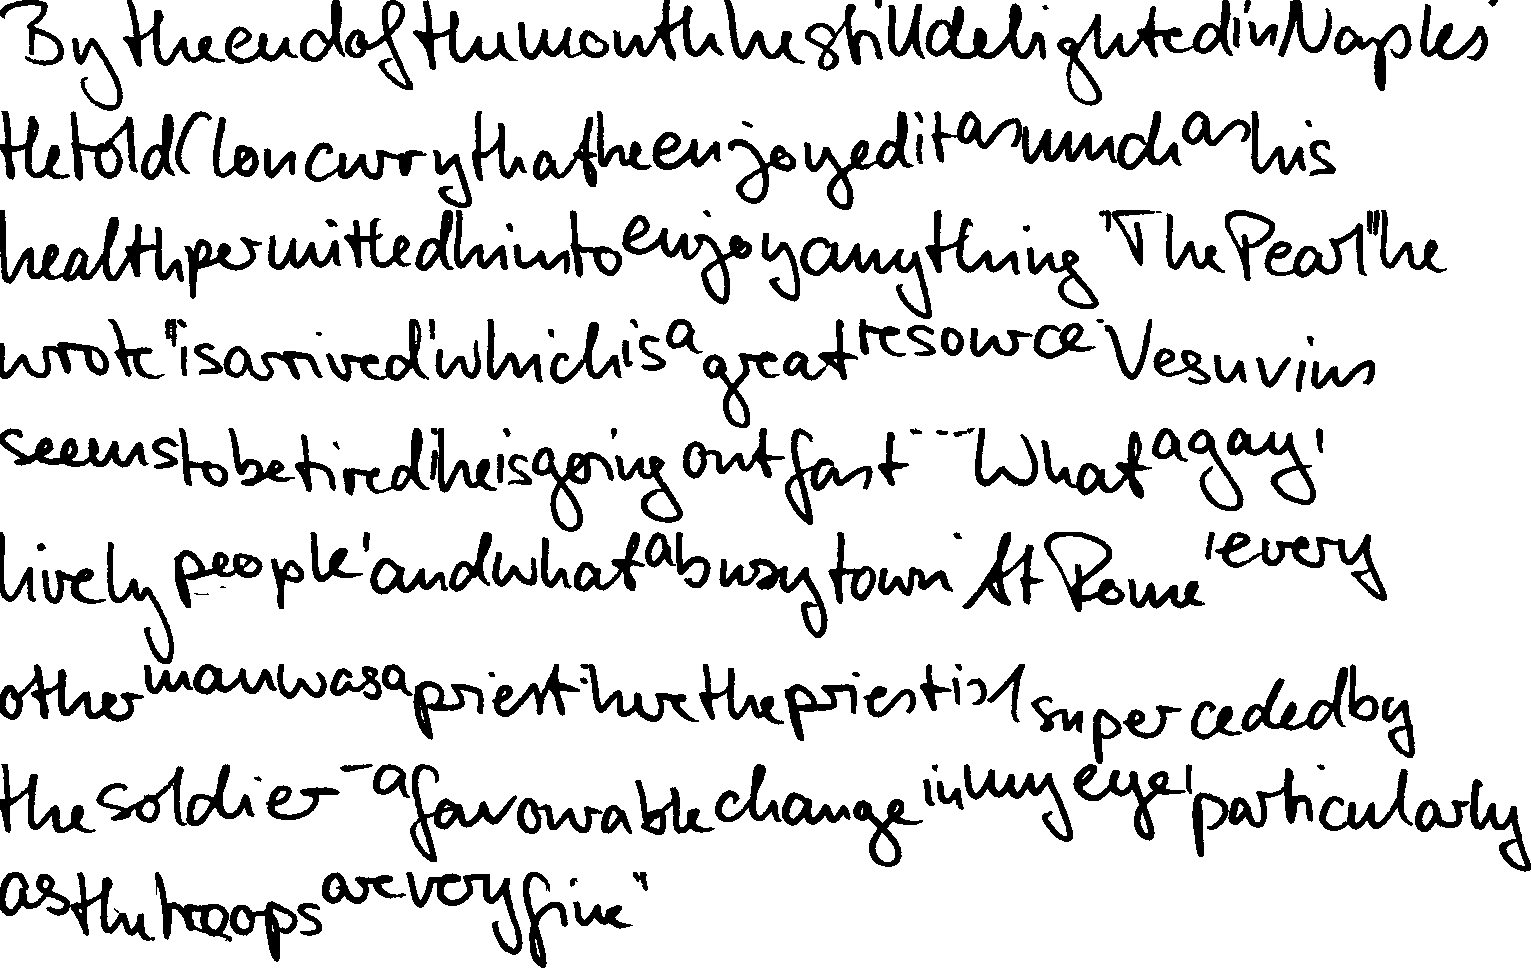 By the end of the month he still delighted in Naples.
He told Cloncurry that he enjoyed it as much as his
health permitted him to enjoy anything. "The Pearl" he
wrote "is arrived, which is a great resource. Vesuvius
seems to be tired, he is going out fast --- What a gay,
lively people, and what a busy town. At Rome, every
other man was a priest, here the priest is superceded by
the soldier - a favourable change in my eye, particularly
as the troops are very fine"